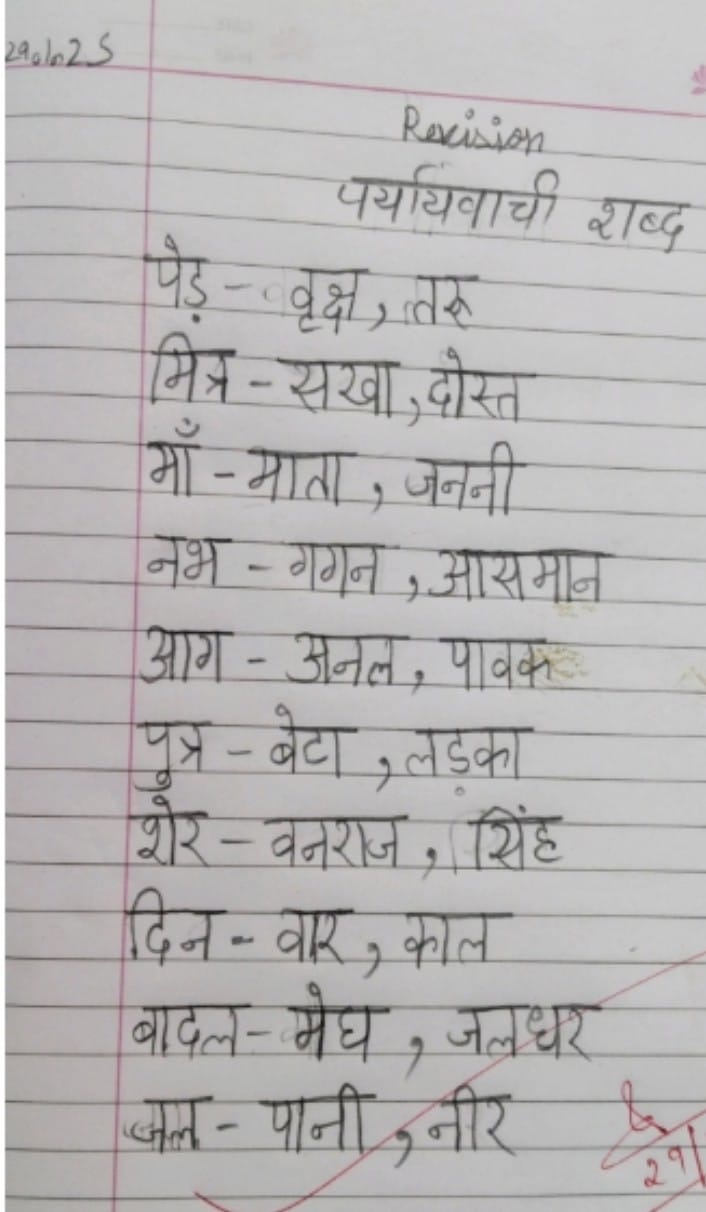 Revision
पर्यायवाची शब्द
पेड़ - वृक्ष, तरू
मित्र - सखा, दोस्त
माँ - माता, जननी
नभ - गगन, आसमान
आग - अनल, पावक
पुत्र - बेटा, लड़का
शेर - वनराज, सिंह
दिन - वार, काल
बादल - मेघ, जलधर
जल - पानी, नीर
29